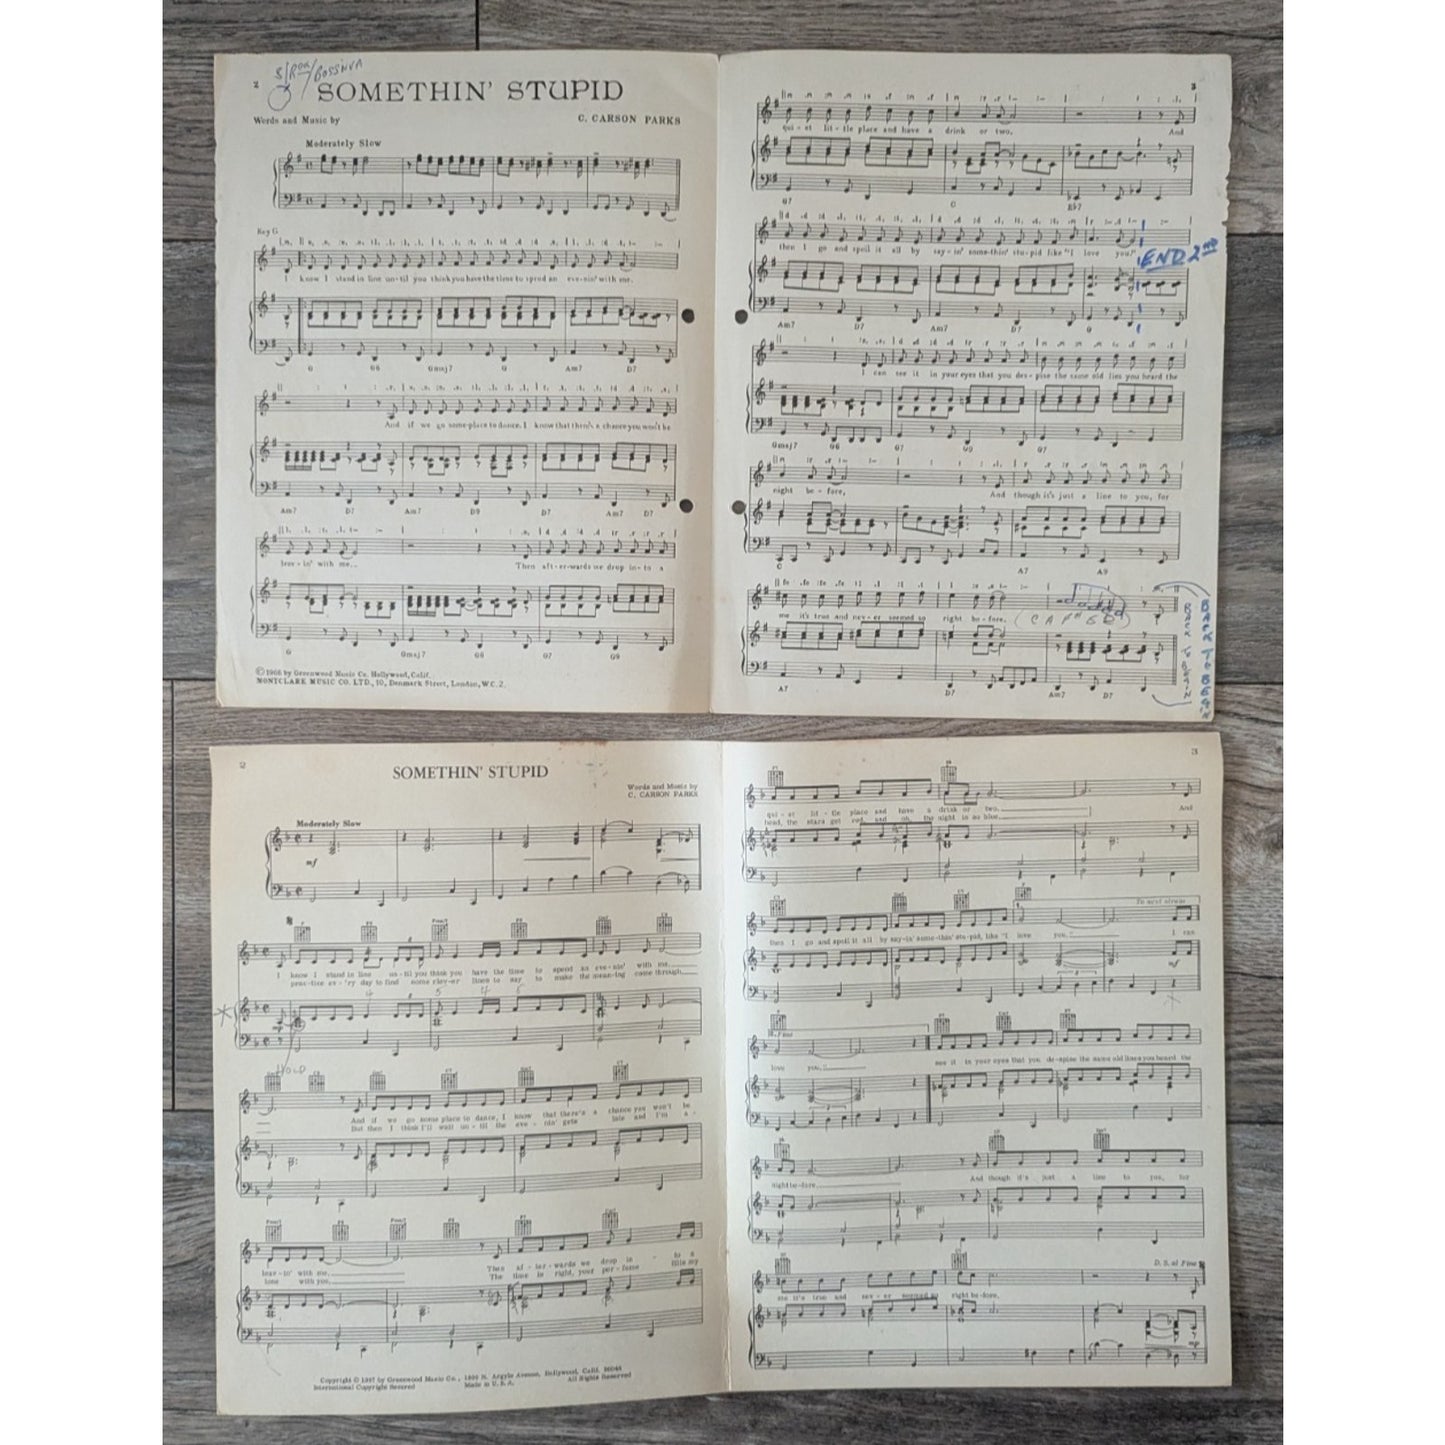 2
S/ROCK/BOSSNVA
SOMETHIN' STUPID
Words and Music by
C. CARSON PARKS
Moderately Slow
Key G
I know I stand in line un-til you think you have the time to spend an eve-nin' with me.
G G6 Gmaj7 G Am7 D7
And if we go some-place to dance, I know that there's a chance you won't be
Am7 D7 Am7 D9 D7 Am7 D7
leav-in' with me.
Then aft-er-wards we drop in-to a
G Gmaj7 G6 G7 G9
©1966 by Greenwood Music Co. Hollywood, Calif.
MONTCLARE MUSIC CO. LTD., 10, Denmark Street, London, W.C.2.
3
qui-et lit-tle place and have a drink or two. And
G7 C Eb7
then I go and spoil it all by say-in' some-thin' stu-pid like "I love you."
END 2ND
Am7 D7 Am7 D7 G
I can see it in your eyes that you des-pise the same old lies you heard the
Gmaj7 G6 G7 G9 G7
night be-fore, And though it's just a line to you, for
C A7 A9
me it's true and nev-er seemed so right be-fore.
A7 D7 Am7 D7
2
SOMETHIN' STUPID
Words and Music by
C. CARSON PARKS
Moderately Slow
mf
I know I stand in line un-til you think you have the time to spend an eve-nin' with me.
prac-tice ev-'ry day to find some clev-er lines to say to make the mean-ing come through.
4 5 4
HOLD
And if we go some place to dance, I know that there's a chance you won't be
But then I think I'll wait un-til the eve-nin' gets late and I'm a-
leav-in' with me. Then af-ter-wards we drop in-to a
lone with you. The time is right, your per-fume fills my
Copyright © 1967 by Greenwood Music Co., 1800 N. Argyle Avenue, Hollywood, Calif. 90028
International Copyright Secured Made in U.S.A. All Rights Reserved
3
qui-et lit-tle place and have a drink or two. And
head, the stars get red and oh, the night is so blue.
To next strain
then I go and spoil it all by say-in' some-thin' stu-pid, like "I love you." I can
mf
Fine
love you." see it in your eyes that you de-spise the same old lines you heard the
night be-fore, And though it's just a line to you, for
D.S. al Fine
me it's true and nev-er seemed so right be-fore.
mp